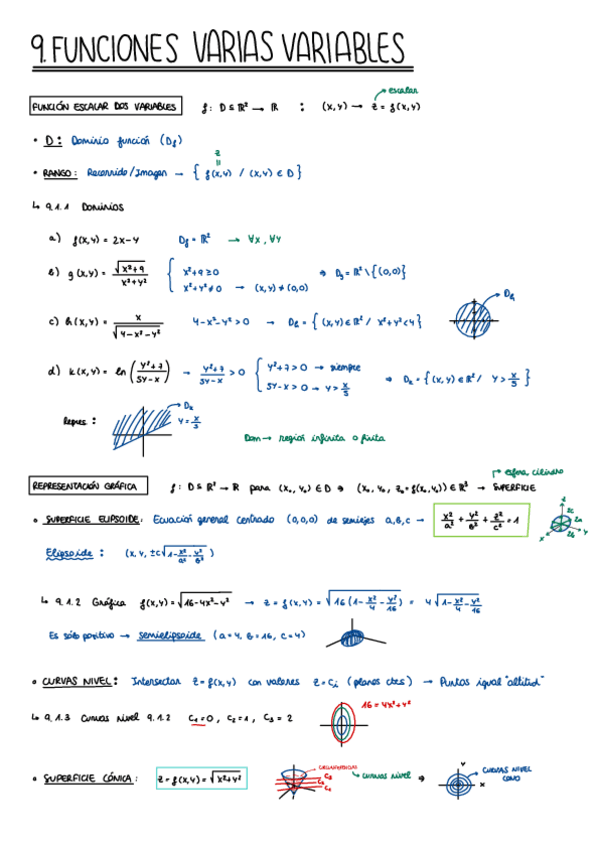 9. FUNCIONES VARIAS VARIABLES
escalar
FUNCIÓN ESCALAR DOS VARIABLES f: D ⊆ ℝ² → ℝ : (x,y) → z = f(x,y)
• D: Dominio función (Df)
z
=
• RANGO: Recorrido/Imagen → { f(x,y) / (x,y) ∈ D }
↳ 9.1.1 Dominios
a) f(x,y) = 2x-y Df = ℝ² → ∀x, ∀y
b) g(x,y) = √(x²+9) / (x²+y²) { x²+9 ≥ 0 ; x²+y² ≠ 0 → (x,y) ≠ (0,0) ⇒ Dg = ℝ² \ {(0,0)}
c) h(x,y) = x / √(4-x²-y²) 4-x²-y² > 0 → Dh = { (x,y) ∈ ℝ² / x²+y² < 4 } Dh
d) k(x,y) = ln( (y²+7) / (5y-x) ) → (y²+7) / (5y-x) > 0 { y²+7 > 0 → siempre ; 5y-x > 0 → y > x/5 ⇒ Dk = { (x,y) ∈ ℝ² / y > x/5 }
Repres: Dk y = x/5
Dom → región infinita o finita
esfera, cilindro
REPRESENTACIÓN GRÁFICA f: D ⊆ ℝ² → ℝ para (x₀,y₀) ∈ D ⇒ (x₀, y₀, z₀=f(x₀,y₀)) ∈ ℝ³ → SUPERFICIE
• SUPERFICIE ELIPSOIDE: Ecuación general centrado (0,0,0) de semiejes a,b,c → x²/a² + y²/b² + z²/c² = 1
z 2c 2a y x 2b
Elipsoide: (x, y, ±c√(1 - x²/a² - y²/b²))
↳ 9.1.2 Gráfica f(x,y) = √(16-4x²-y²) → z = f(x,y) = √(16(1 - x²/4 - y²/16)) = 4√(1 - x²/4 - y²/16)
Es sólo positivo → semielipsoide (a=4, b=16, c=4)
• CURVAS NIVEL: Intersectar z=f(x,y) con valores z=Ci (planos ctes) → Puntos igual "altitud"
↳ 9.1.3 Curvas nivel 9.1.2 C₁=0, C₂=1, C₃=2 16 = 4x²+y²
• SUPERFICIE CÓNICA: z = f(x,y) = √(x²+y²) C₃ C₂ C₁ curvas nivel ⇒ y x CURVAS NIVEL CONO